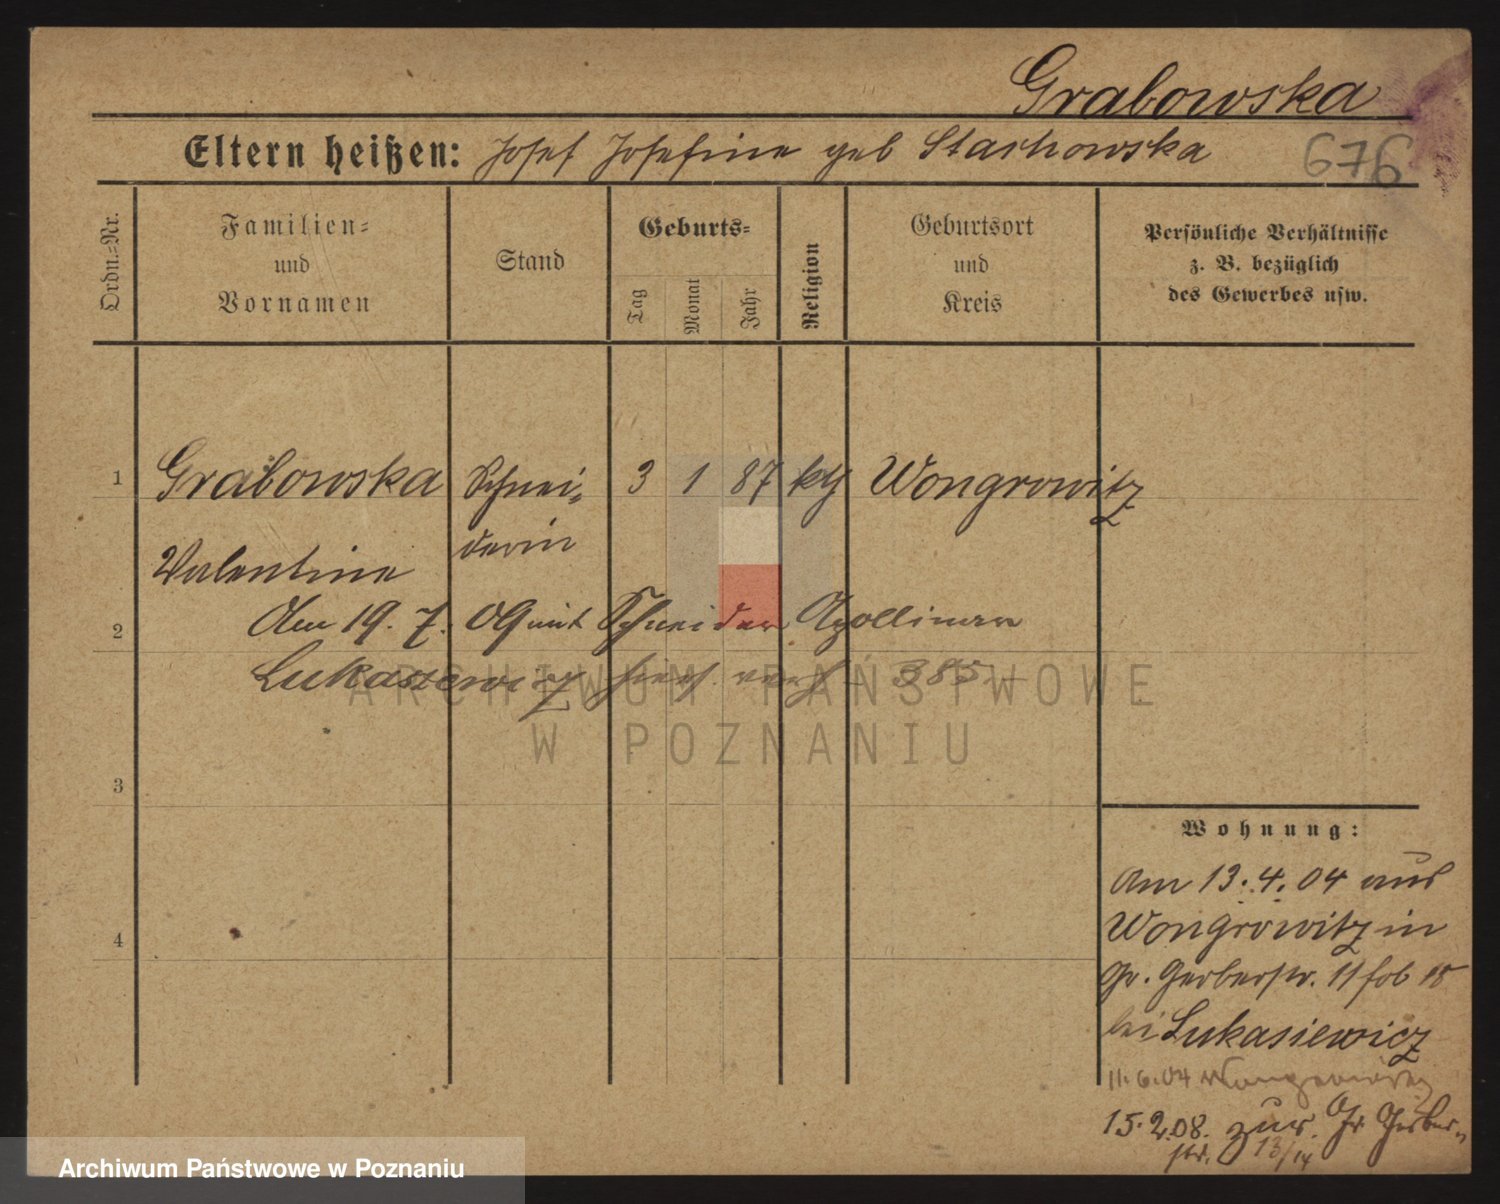 Grabowska
Eltern heißen: Josef Josefine geb Stachowska 676
Ordn.=Nr.
Familien=
und
Vornamen
Stand
Geburts=
Tag
Monat
Jahr
Religion
Geburtsort
und
Kreis
Persönliche Verhältnisse
z. B. bezüglich
des Gewerbes usw.
1 Grabowska Schnei= 3 1 87 kth Wongrowitz
derin
Valentine
2 Am 19. 7. 09 mit Schneider Apollinar
Lukaszewicz hier verh 385
3
4
Wohnung:
Am 13.4.04 aus
Wongrowitz in
Gr. Gerberstr. 11
bei Lukasiewicz
11.6.04 Wongrowitz
15.2.08. zur. Gr Gerber=
str. 13/14
ARCHIWUM PAŃSTWOWE
W POZNANIU
Archiwum Państwowe w Poznaniu